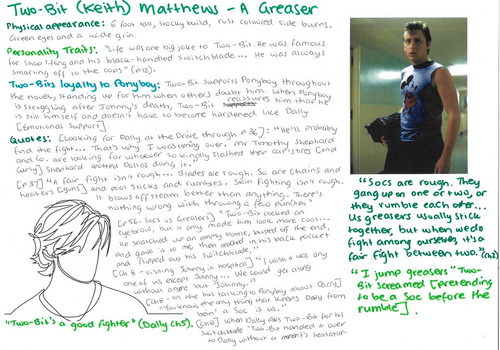 Two-Bit (Keith) Matthews - A Greaser
Physical appearance: 6 foot tall, stocky build, rust coloured side burns.
Green eyes and a wide grin.
Personality Traits: "Life was one big joke to Two-Bit. He was famous
for shoplifting and his black-handled switchblade... He was always
smarting off to the cops" (p12).
Two-Bits loyalty to Ponyboy: Two-Bit supports Ponyboy throughout
the novel, standing up for him when others doubt him. When Ponyboy
is struggling after Johnny's death, Two-Bit reassures him that he
is still himself and doesn't have to become hardened like Dally
[Emotional Support]
Quotes: [Looking for Dally at the Drive through p36]: "He'll probably
find the fight... That's why I was coming over. Mr Timothy Shephard
and Co. are looking for whoever so kindly slashed their car's tires [and
Curly] Shephard spotted Dallas doing it.
[p37] "A fair fight isn't rough... Blades are rough. So are chains and
heaters [guns] and pool sticks and rumbles. Skin fighting isn't rough.
It blows off steam better than anything. There's
nothing wrong with throwing a few punches"
[p56 - Socs vs Greasers] "Two-Bit cocked an
eyebrow, but it only made him look more cool...
He snatched up an empty bottle, busted off the end,
and gave it to me then reached in his back pocket
and flipped out his switchblade."
[Ch 8 - visiting Johnny in hospital] "I wish it was any
one of us except Johnny... We could get along
without anyone but Johnny."
[Ch8 - on the bus talking to Ponyboy about
"You know the only thing that keeps Darry from
bein' a Soc is us."
"Two-Bit's a good fighter" (Dally Ch5). [Ch8] when Dally asks Two-Bit for his
switchblade "Two-Bit handed it over
to Dally without a moment's hesitation
"Socs are rough. They
gang up on one or two, or
they rumble each other...
Us greasers usually stick
together, but when we do
fight among ourselves, it's a
fair fight between two." (Ch2)
"I jump greasers" Two-
Bit screamed [pretending
to be a Soc before the
rumble].